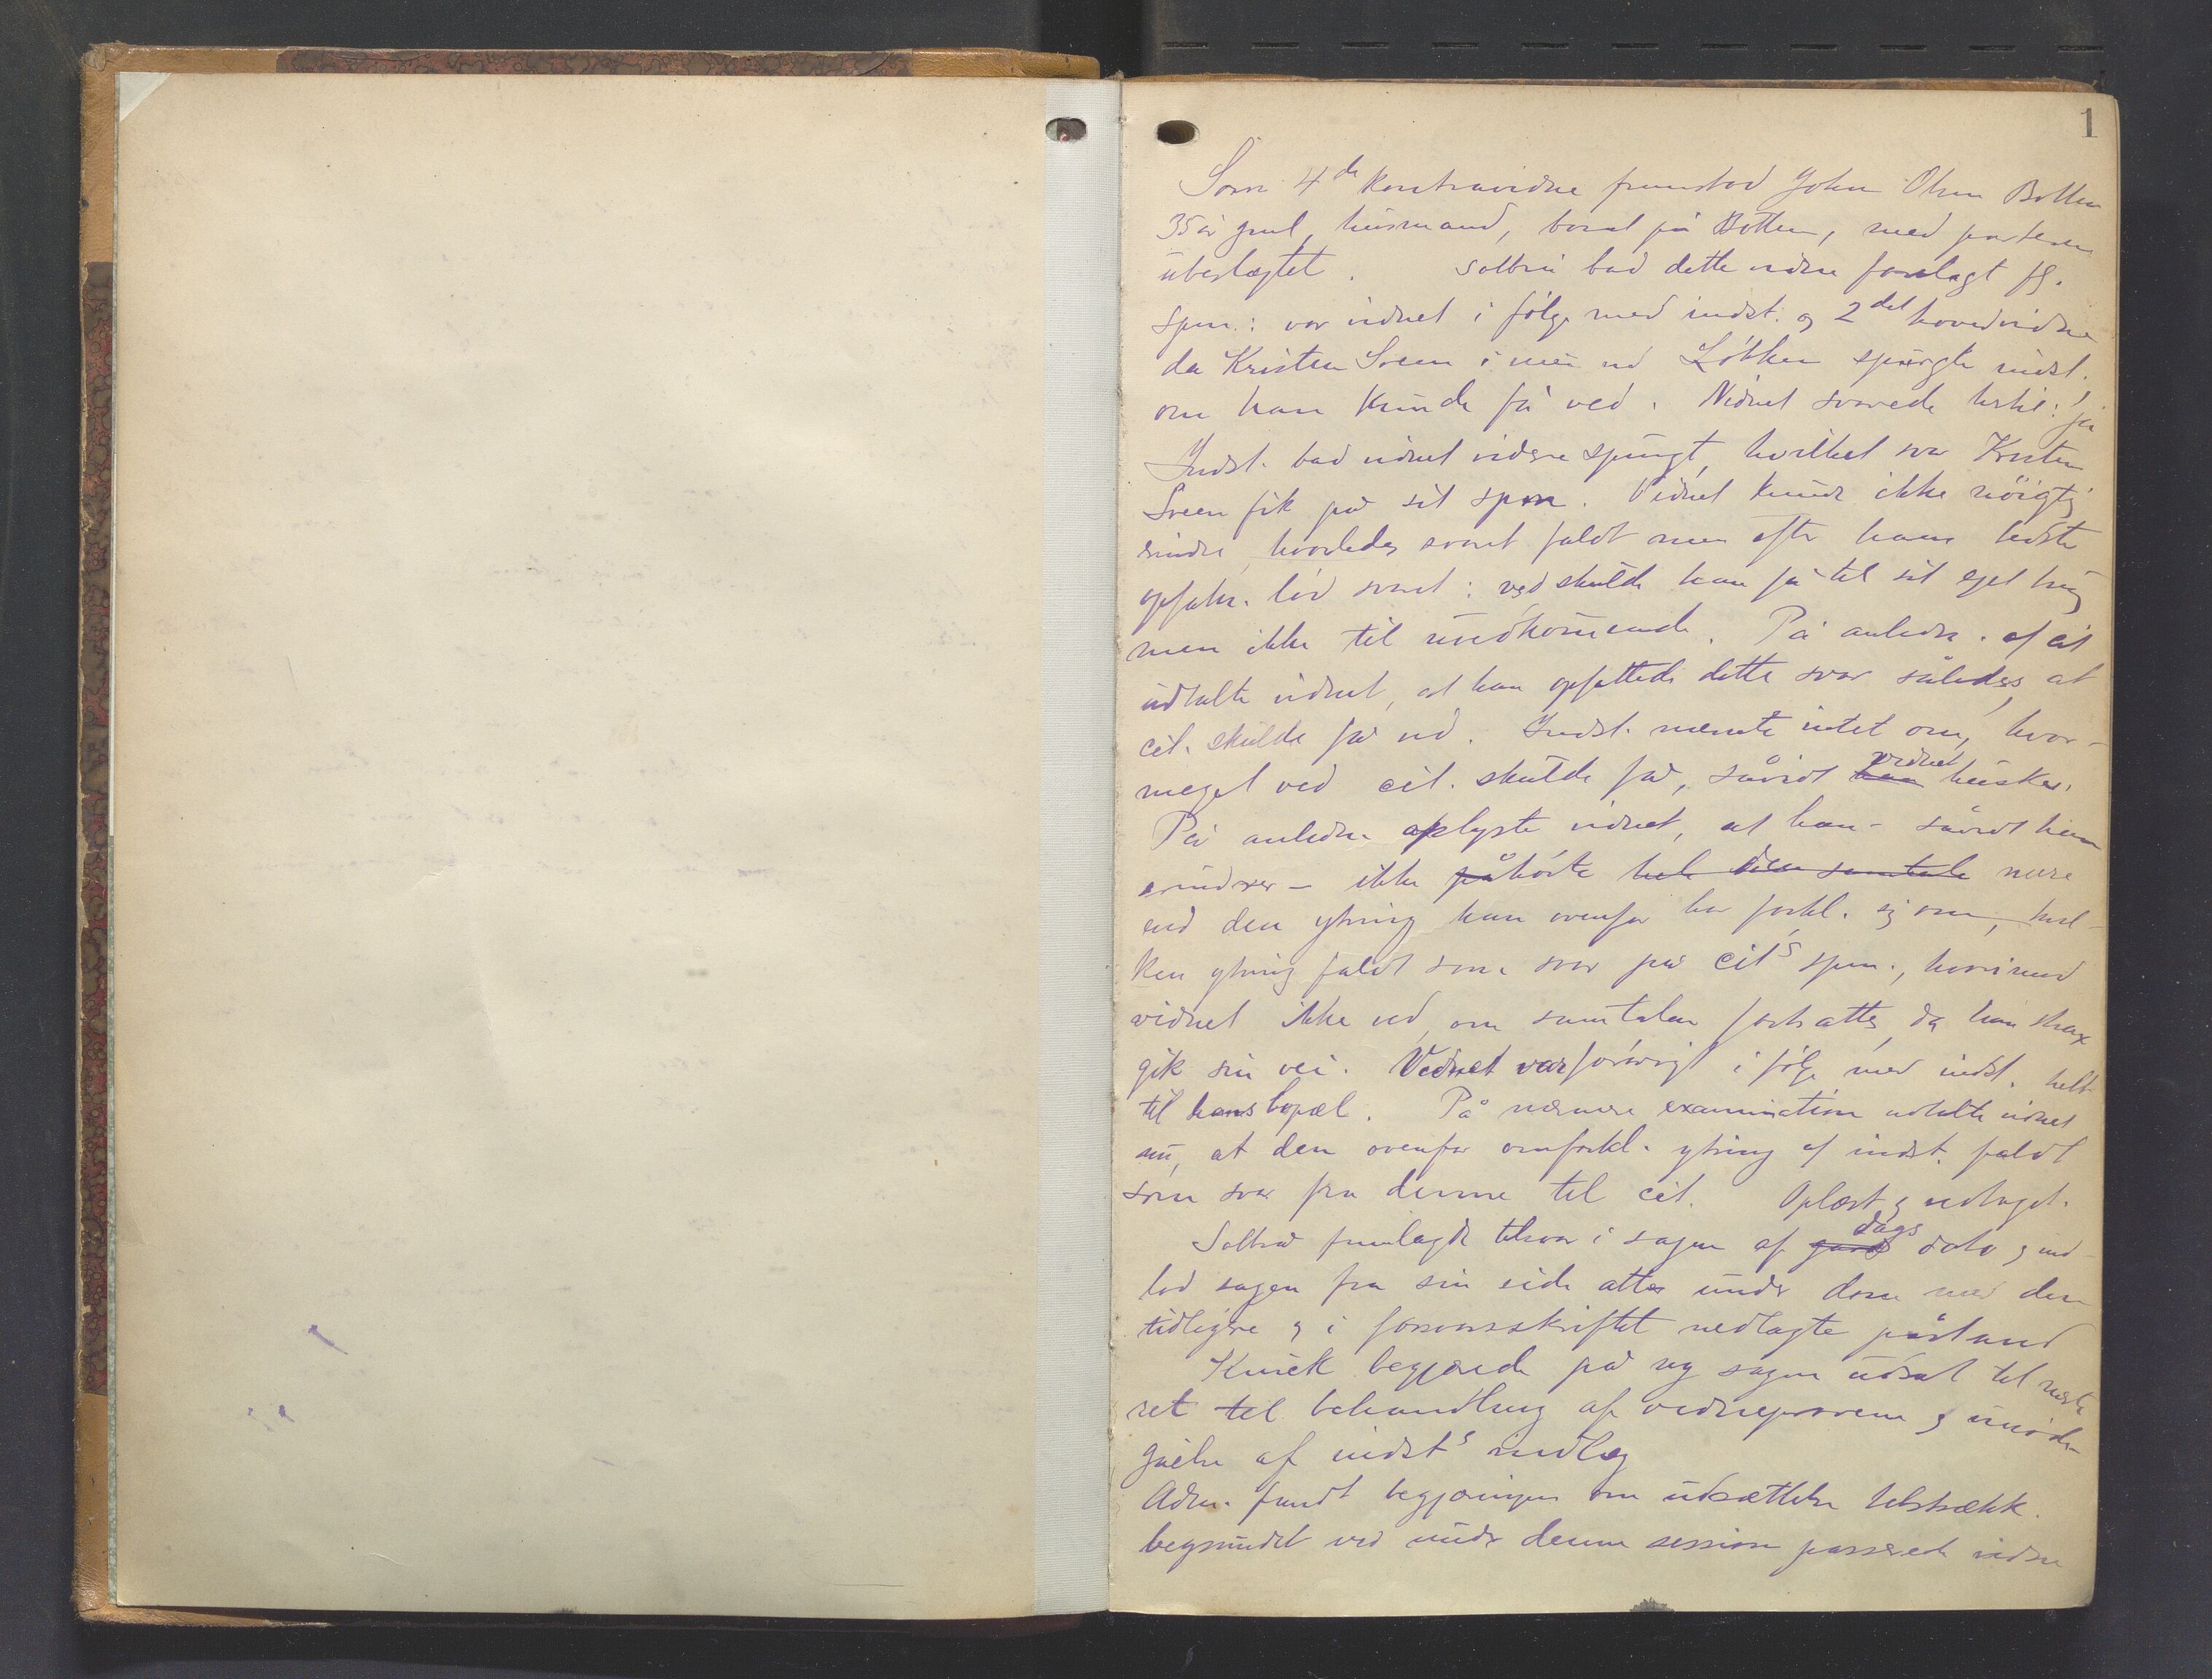 1
Som 4de kontravidne fremstod John Olsen Botten
35 år gml, husmand, bosat på Botten, med parterne
ubeslægtet. Solbrå bad dette vidne forelagt flg.
spm.: var vidnet i følge med indst. og 2det hovedvidne
da Kristen Sveen i mai ved Løkken spurgte indst.
om han kunde få ved. Vidnet svarede hertil: ja
Indst. bad vidnet videre spurgt, hvilket svar Kristen
Sveen fik på sit spm. Vidnet kunde ikke nøigtig
erindre, hvorledes svaret faldt men efter hans bedste
opfatn. lød svaret: ved skulde han få til sit eget brug
men ikke til uvedkommende. På anledn. af cit
udtalte vidnet, at han opfattede dette svar således, at
cit. skulde få ved. Indst. nævnte intet om, hvor-
meget ved cit. skulde få, såvidt han vidnet husker.
På anledn. oplyste vidnet, at han - såvidt han
erindrer - ikke påhørte hele den samtale mere
end den ytring han ovenfor har forkl. sig om, hvil-
ken ytring faldt som svar på cits spm., hvorimod
vidnet ikke ved, om samtalen fortsattes, da han strax
gik sin vei. Vidnet var forøvrigt i følge med indst. helt
til hans bopæl. På nærmere examination udtalte vidnet
nu, at den ovenfor omforkl. ytring af indst. faldt
som svar fra denne til cit. Oplæst og vedtaget.
Solbrå fremlagde tilsvar i sagen af dags dato og ind-
lod sagen fra sin side atter under dom med den
tidligere og i forsvarsskriftet nedlagte påstand
begjærede på ny sagen udsat til næste
ret til behandling af vidneprovene og imøde-
gåelse af indsts indlæg
Adm. fandt begjæringen om udsættelse tilstrækk.
begrundet ved under denne session passerede vidne